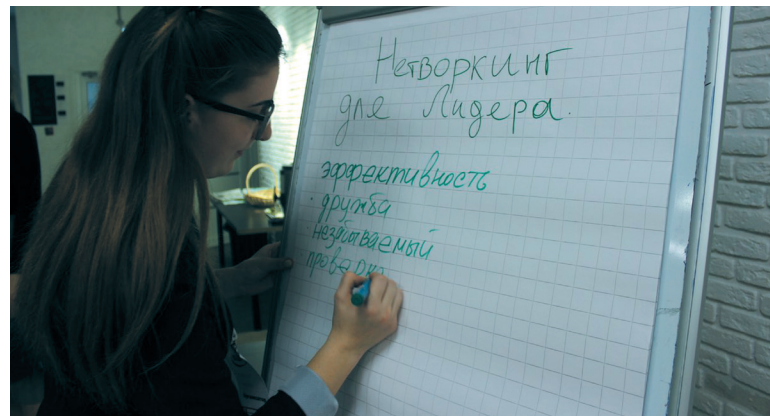 Нетворкинг
для Лидера.
эффективность
· дружба
· незабываемый